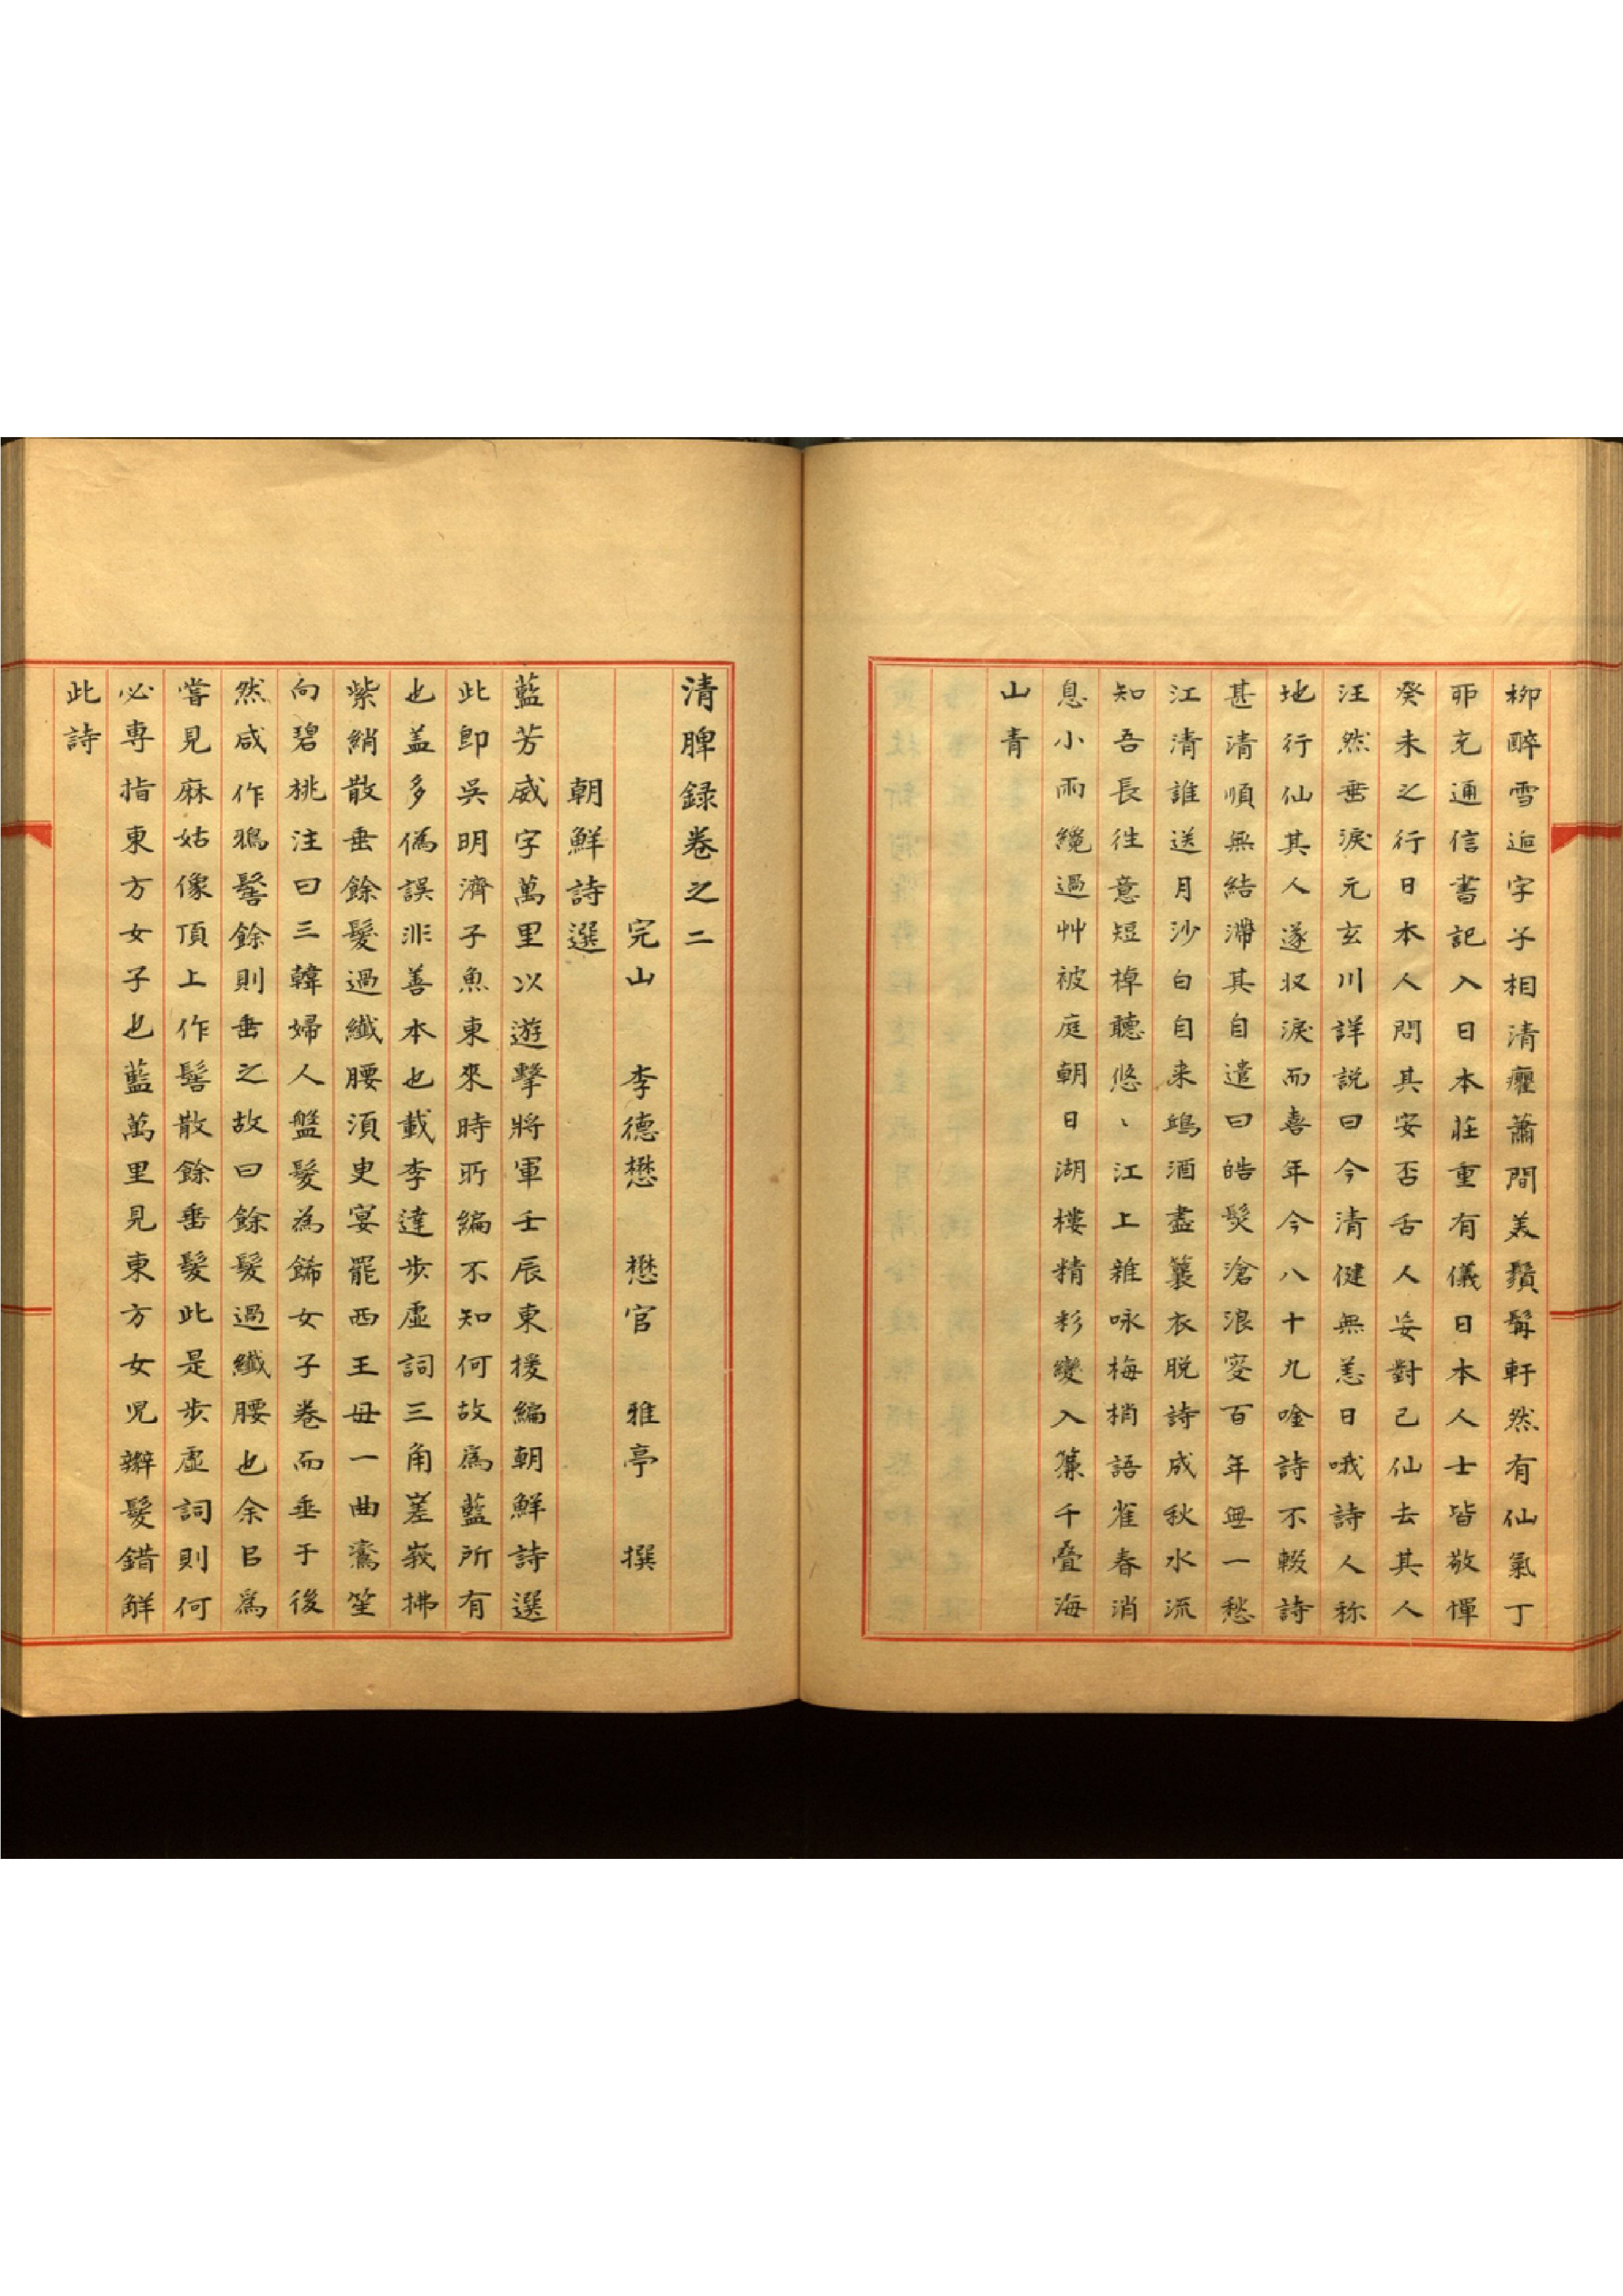 柳醉雪逅字子相清癯蕭間美鬚髯軒然有仙氣丁
卯充通信書記入日本莊重有儀日本人士皆敬憚
癸未之行日本人問其安否舌人妄對已仙去其人
汪然垂淚元玄川詳説曰今清健無恙日哦詩人称
地行仙其人遂収淚而喜年今八十九唫詩不輟詩
甚清順無結滯其自遣曰皓髮滄浪叜百年無一愁
江清誰送月沙白自来鴎酒盡蓑衣脱詩成秋水流
知吾長徃意短棹聽悠〻江上雜咏梅梢語雀春消
息小雨纔過艸被庭朝日湖樓精彩變入簾千疊海
山青
清脾録卷之二
完山 李德懋 懋官 雅亭 撰
朝鮮詩選
藍芳威字萬里以遊擊將軍壬辰東援編朝鮮詩選
此卽吳明濟子魚東來時所編不知何故爲藍所有
也盖多僞誤非善本也載李達步虛詞三角嵳峩拂
紫綃散垂餘髮過纖腰湏史宴罷西王母一曲鸞笙
向碧桃注曰三韓婦人盤髮為餙女子卷而垂于後
然咸作鴉髻餘則垂之故曰餘髮過纖腰也余㠯爲
嘗見麻姑像頂上作髻散餘垂髮此是步虛詞則何
必專指東方女子也藍萬里見東方女児辮髮錯觧
此詩